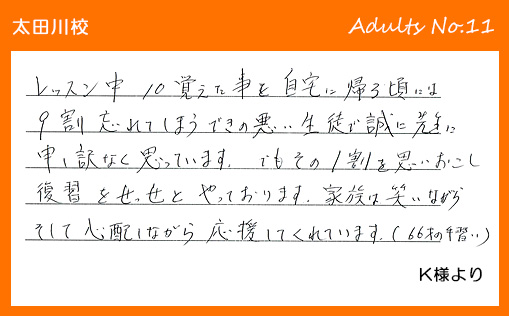 太田川校
Adults No.11
レッスン中 10覚えた事を自宅に帰る頃には
9割忘れてしまうできの悪い生徒で誠に先生に
申し訳なく思っています。でもその1割を思いおこし
復習をせっせとやっております。家族は笑いながら
そして心配しながら応援してくれています。(66才の手習い)
K様より